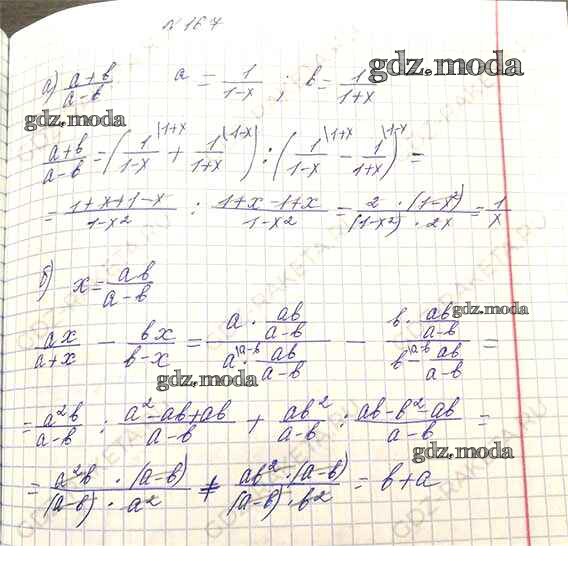 № 167
а) (a+b)/(a-b)   a = 1/(1-x) ; b = 1/(1+x)
gdz.moda
gdz.moda
(a+b)/(a-b) = (1/(1-x) |1+x + 1/(1+x) |1-x) : (1/(1-x) |1+x - 1/(1+x) |1-x) =
= (1+x+1-x)/(1-x²) : (1+x-1+x)/(1-x²) = (2 · (1-x²))/((1-x²) · 2x) = 1/x
б) x = ab/(a-b)
gdz.moda
ax/(a+x) - bx/(b-x) = (a · ab/(a-b))/(a |a-b - ab/(a-b)) - (b · ab/(a-b))/(b |a-b - ab/(a-b)) =
gdz.moda
= a²b/(a-b) : (a²-ab+ab)/(a-b) + ab²/(a-b) : (ab-b²-ab)/(a-b) =
gdz.moda
= (a²b · (a-b))/((a-b) · a²) + (ab² · (a-b))/((a-b) · b²) = b+a
GDZ-RAKETA.RU